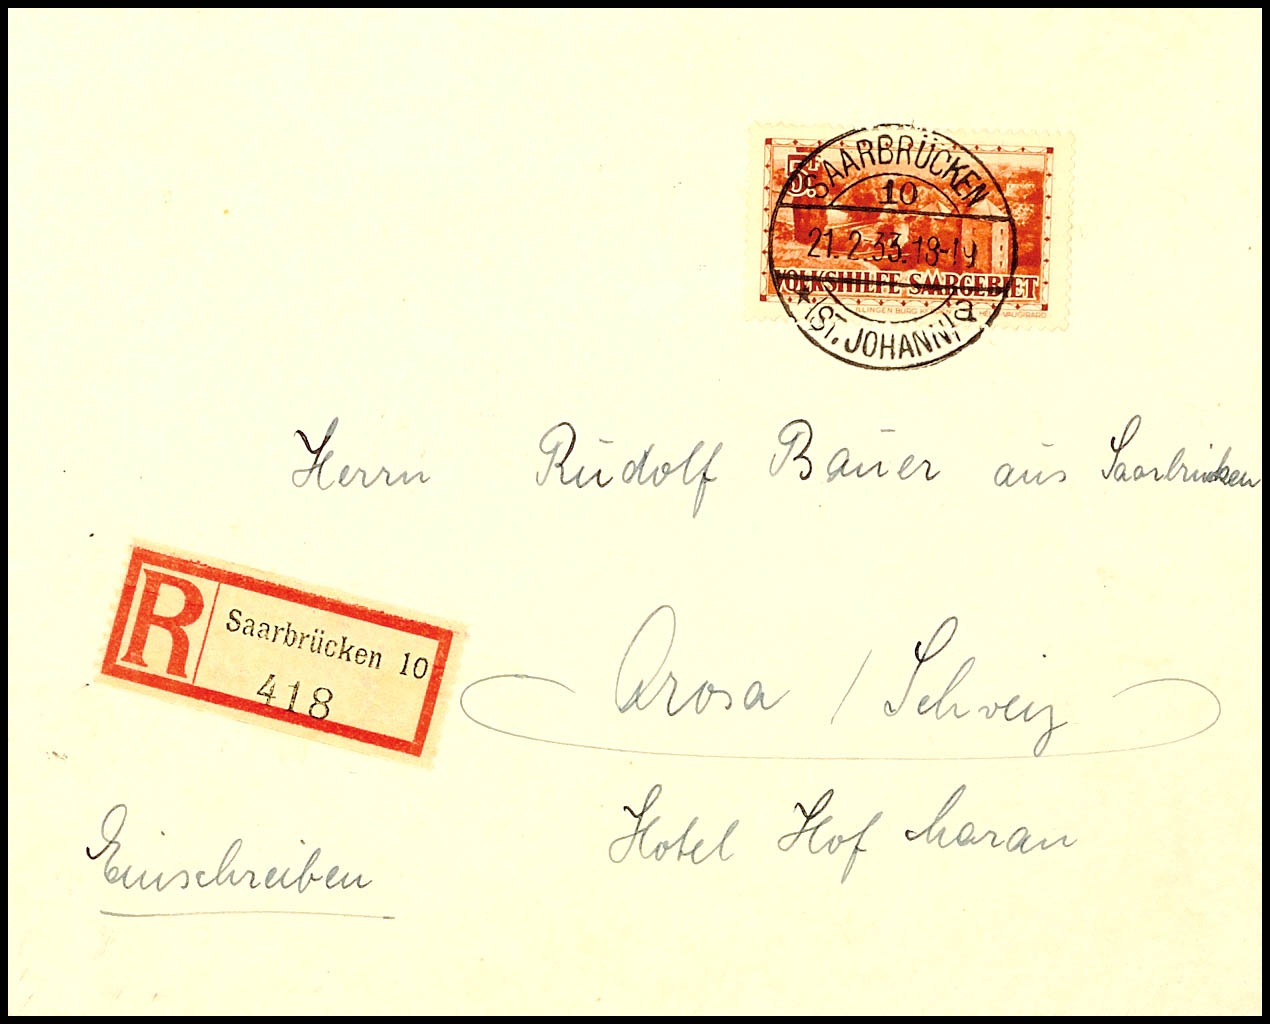 5F.
VOLKSHILFE SAARGEBIET
ILLINGEN BURG
VAUGIRARD
SAARBRÜCKEN
10
21.2.33.18-19
a
★ (ST. JOHANN)
Herrn Rudolf Bauer aus Saarbrücken
R
Saarbrücken 10
418
Arosa / Schweiz
Hotel Hof Maran
Einschreiben